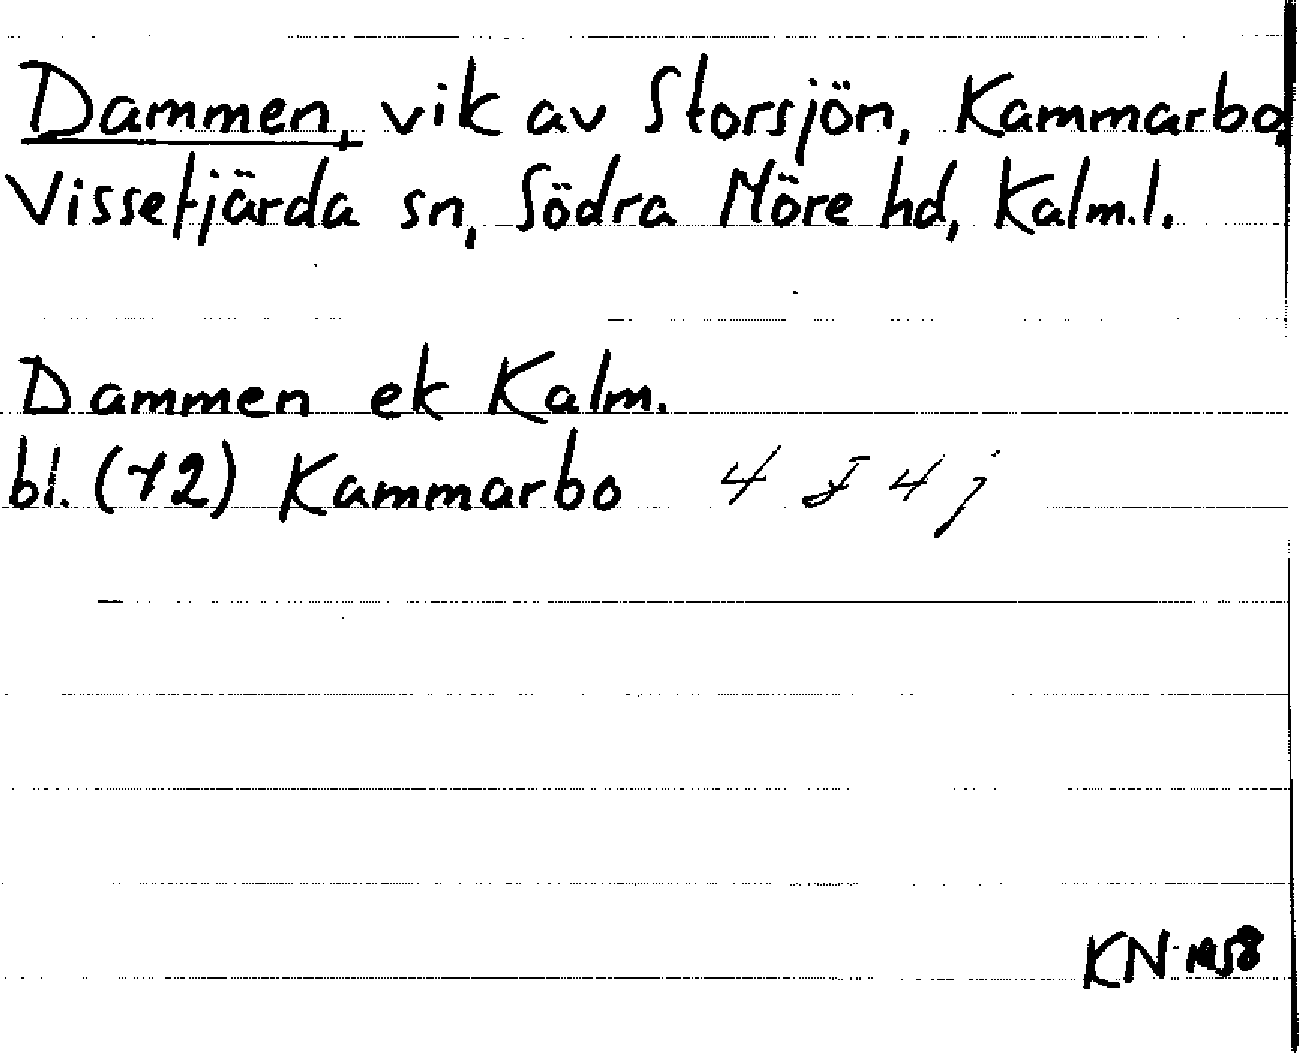 Dammen, vik av Storsjön, Kammarbo,
Vissefjärda sn, Södra Möre hd, Kalm.l.
Dammen ek Kalm.
bl. (72) Kammarbo 4 F 4 j
KN 1958